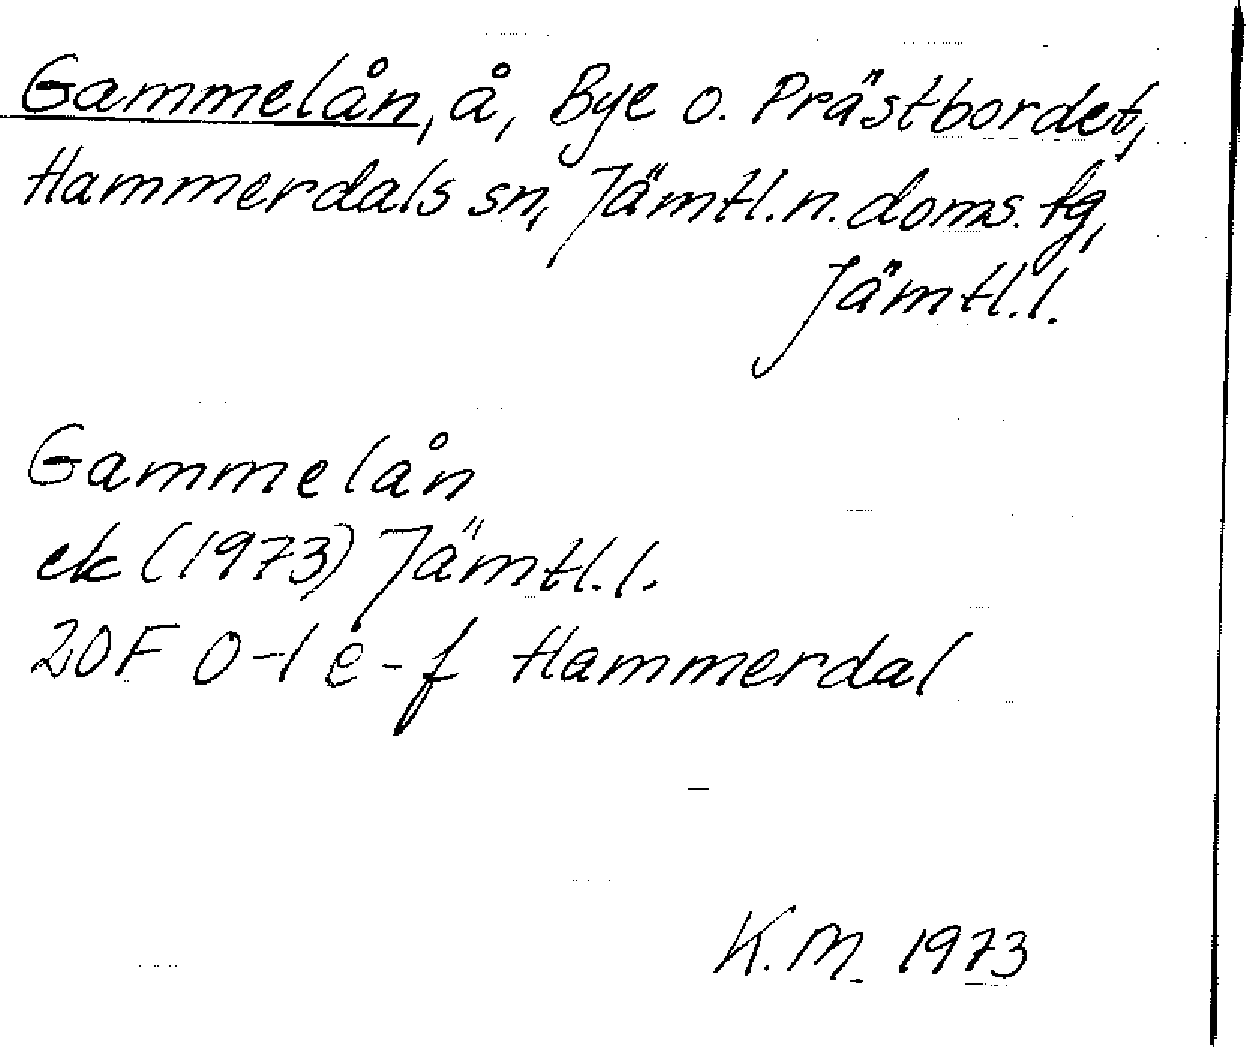 Gammelån, å, Bye o. Prästbordet,
Hammerdals sn, Jämtl. n. doms. tg,
Jämtl. l.
Gammelån
ek (1973) Jämtl. l.
20F 0-1 e-f Hammerdal
K. M. 1973